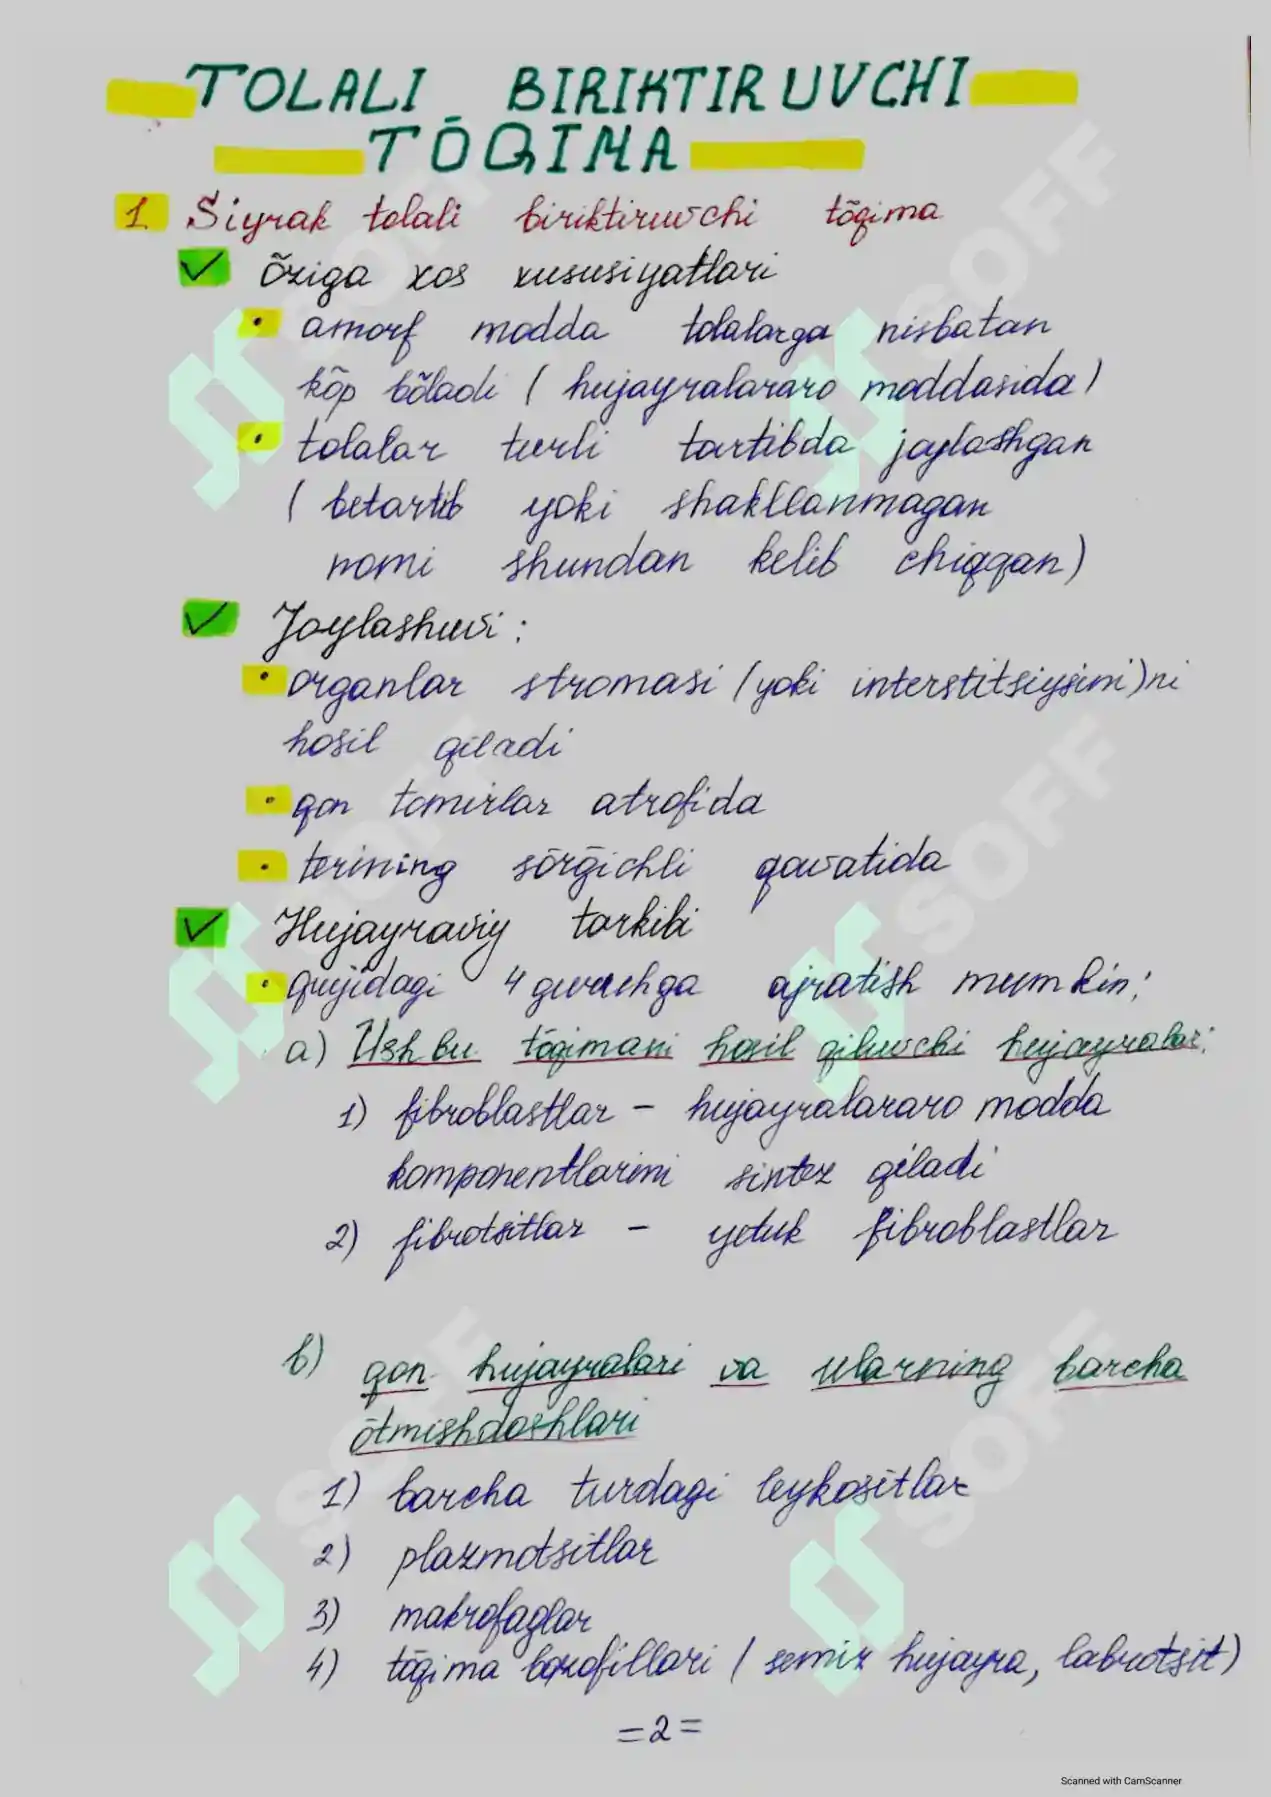 TOLALI BIRIKTIRUVCHI
TŌQIMA
1 Siyrak tolali biriktiruvchi tōqima
✓ Ōziga xos xususiyatlari
• amorf modda tolalarga nisbatan
kōp bōladi ( hujayralararo moddasida )
• tolalar turli tartibda joylashgan
( betartib yoki shakllanmagan
nomi shundan kelib chiqqan)
✓ Joylashuvi :
• organlar stromasi (yoki interstitsiysini)ni
hosil qiladi
• qon tomirlar atrofida
• terining sōrğichli qavatida
✓ Hujayraviy tarkibi
• quyidagi 4 guruhga ajratish mumkin:
a) Ushbu tōqimani hosil qiluvchi hujayralar:
1) fibroblastlar – hujayralararo modda
komponentlarini sintez qiladi
2) fibrotsitlar – yetuk fibroblastlar
b) qon hujayralari va ularning barcha
ōtmishdoshlari
1) barcha turdagi leykositlar
2) plazmotsitlar
3) makrofaglar
4) tōqima bazofillari ( semiz hujayra, labrotsit)
=2=
SOFF
SOFF
SOFF
SOFF
SOFF
SOFF
Scanned with CamScanner